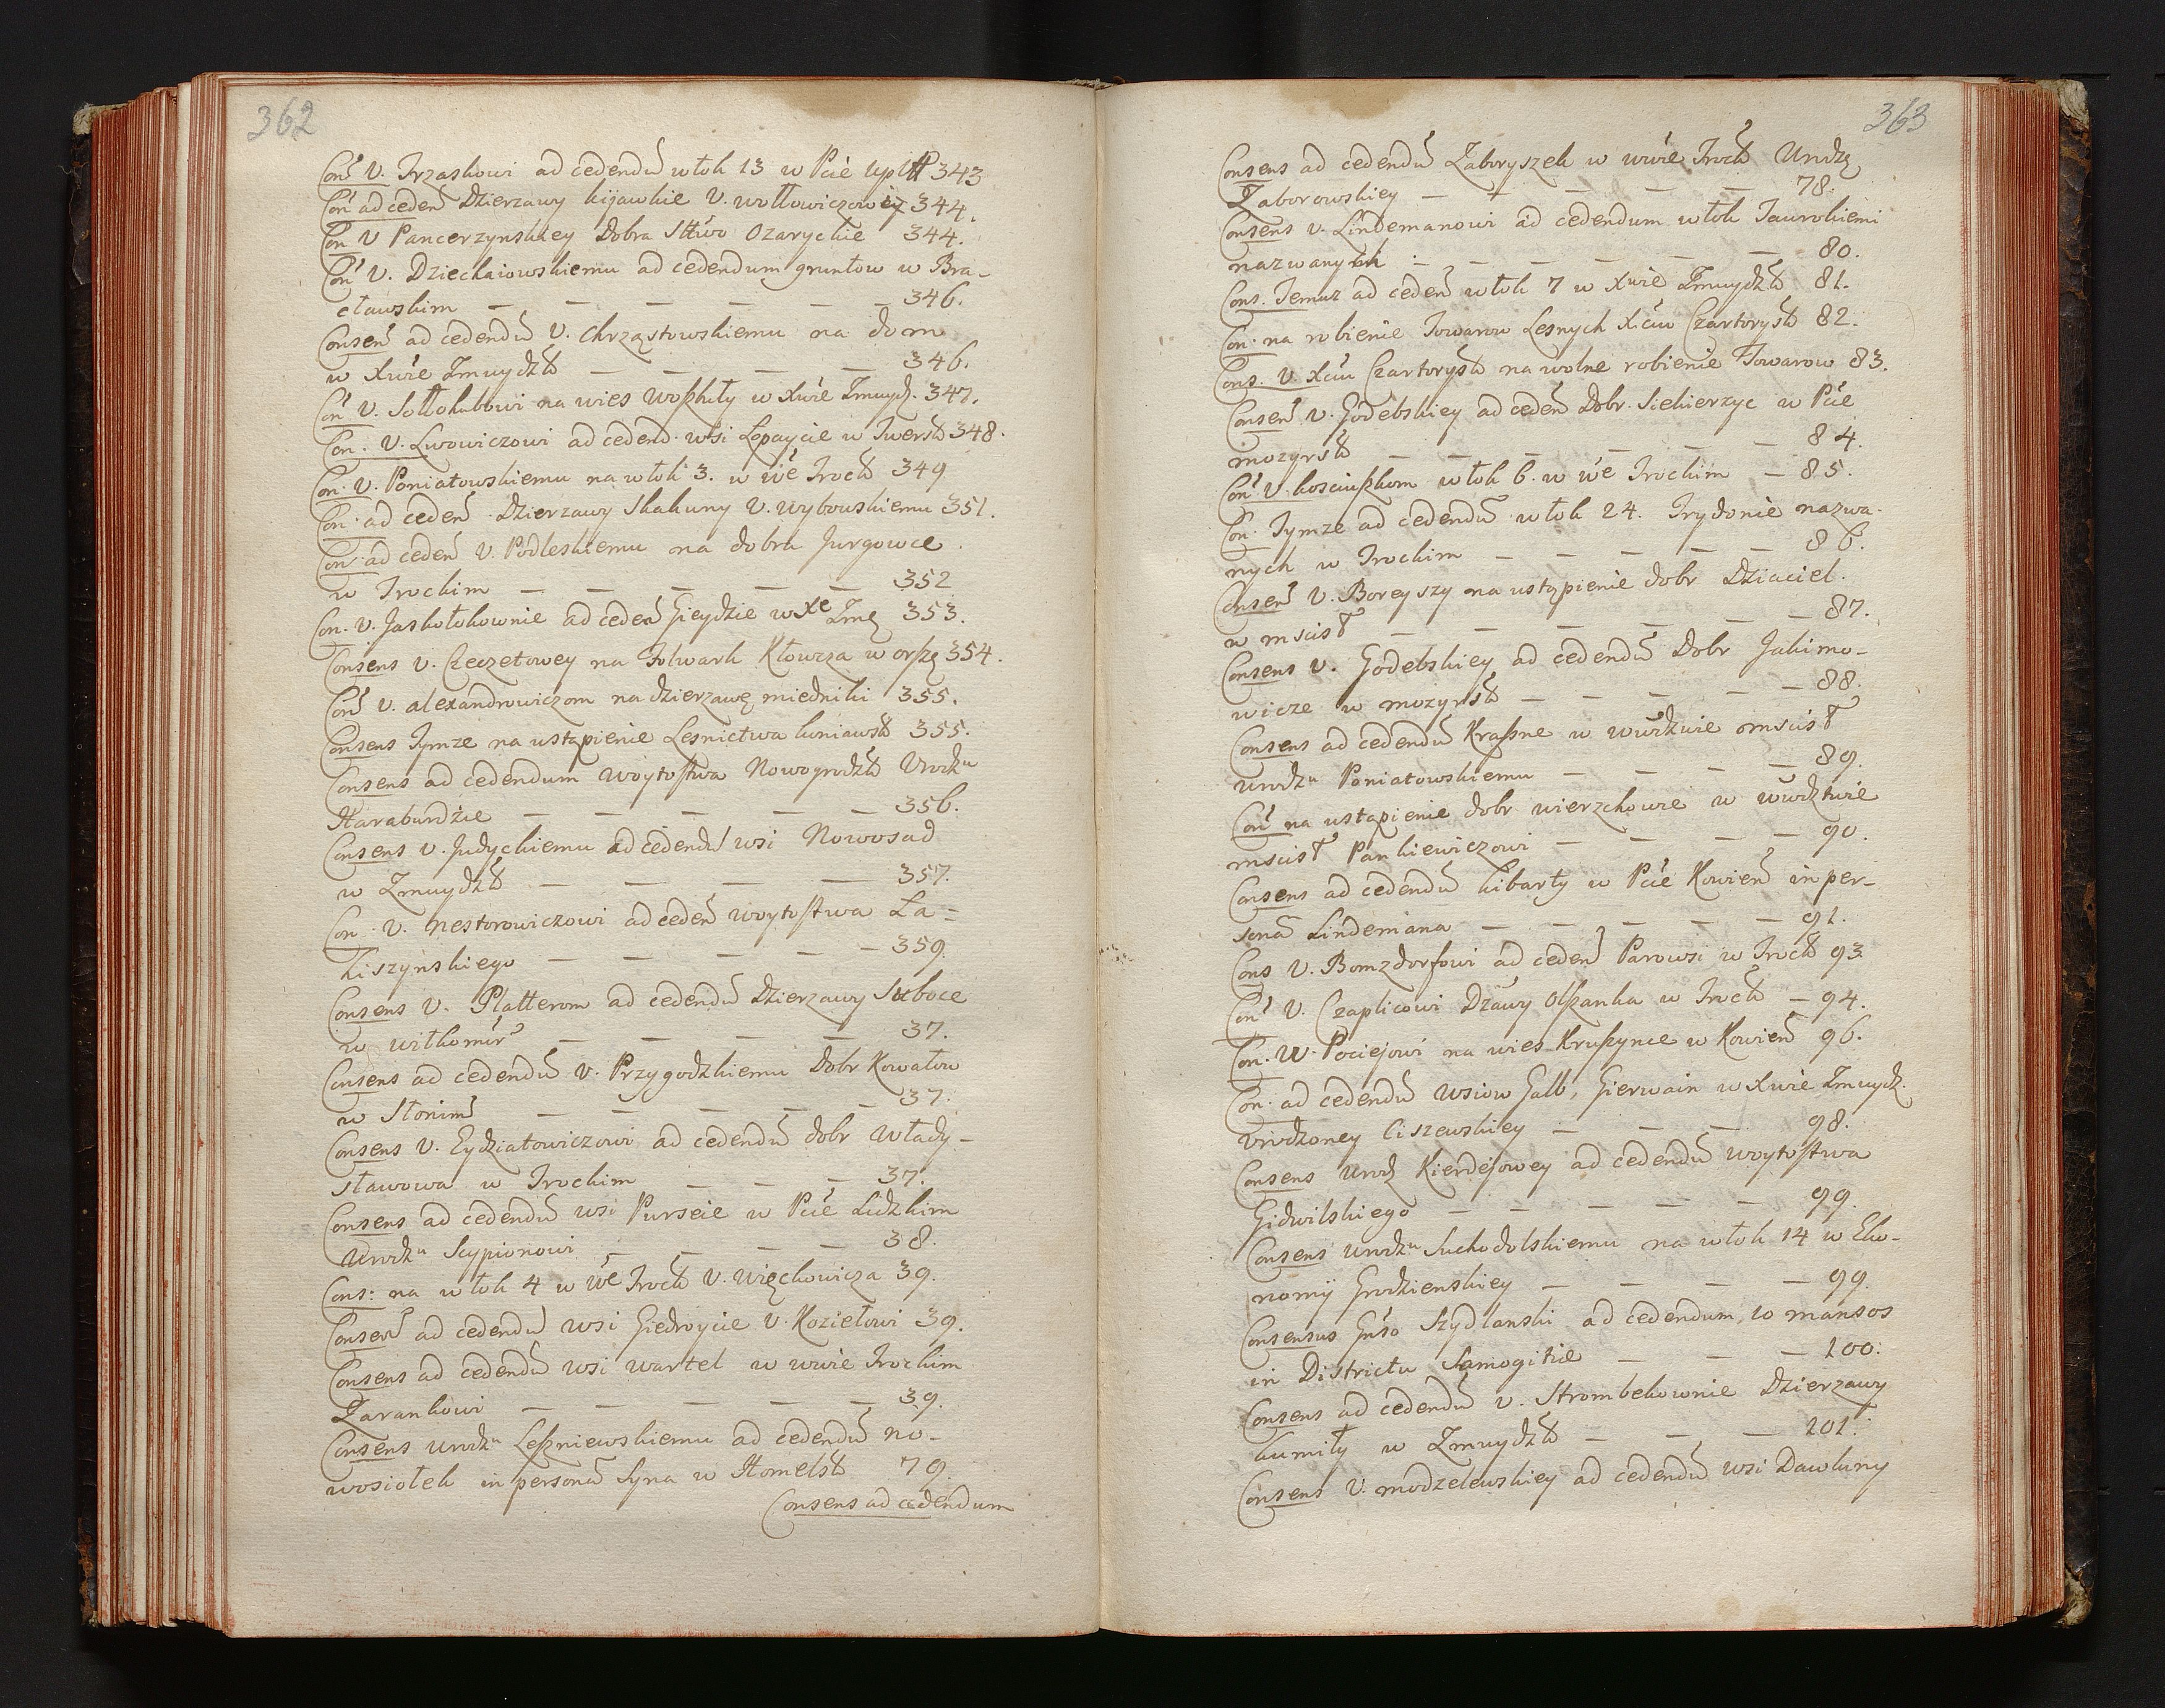 362
Cons V. Trzaskowi ad cedendu włok 13 w Pcie Uptt 343
Con ad ceden Dzierzawy kijawkie V. wołłowiczowiey 344.
Con V Pancerzynskiey Dobra Sttwo Ozaryckie 344.
Con V. Dziechaiowskiemu ad cedendum gruntow w Bra-
cławskim — — — — — — 346.
Consen ad cedendu V. Chrząstowskiemu na dom
w Xwie Zmuydzk — — — — 346.
Con V. Sołłohubowi na wies Woszkiły w Xwie Zmuydz. 347.
Con. V. Lwowiczowi ad cedend. wsi Lepaycie w Twersk 348.
Con. V. Poniatowskiemu na włok 3. w we Trock 349
Con. ad ceden Dzierzawy Skakuny V. Wybowskiemu 351.
Con. ad ceden V. Podleskiemu na dobra Jurgowce
w Trockim — — — — — 352
Con. V. Jaskołokownie ad ceden Gieydzie w Xe Zmę 353.
Consens V. Czeczetowey na Folwark Kłowcza w orszę 354.
Cons V. alexandrowiczom na dzierzawę miedniki 355.
Consens Tymze na ustąpienie Lesnictwa kuniawsk 355.
Consens ad cedendum Woytostwa Nowogrodzk Urodzu
Haraburdzie — — — — — 356.
Consens V. Judyckiemu ad cedendu wsi Nowosad
w Zmuydzk — — — — 357.
Con. V. Nestorowiczowi ad ceden woytostwa Ła-
kiszynskiego — — — — — 359.
Consens V. Platterom ad cedendu Dzierzawy Suboce
w wiłkomir — — — — 37.
Consens ad cedendu V. Przygodzkiemu Dobr Kowałow
w Słonim — — — — — 37.
Consens V. Eydziatowiczowi ad cedendu dobr Włady-
sławowa w Trockim — — — 37.
Consens ad cedendu wsi Purscie w Pcie Lidzkim
Urodzu Scypionowi — — — — 38.
Cons: na włok 4 w we Trock V. Więckowicza 39.
Consen ad cedendu wsi Giedroycie V. Koziełłowi 39.
Consens ad cedendu wsi Wartel w wwie Trockim
Zarankowi — — — — — 39.
Consens urodzu Leszniewskiemu ad cedendu no-
wosiołek in persona Syna w Homelsk 79.
Consens ad cedendum
363
Consens ad cedendu Zaboryszek w wwie Trock Urodzę
Zaborowskiey — — — — — 78.
Consens V. Lindemanowi ad cedendum włok Taurokiemi
nazwanych — — — — — — 80.
Cons. Temuz ad ceden włok 7 w Xwie Zmuydzk 81.
Con. na robienie Towarow Lesnych Xciu Czartorysk 82.
Cons. V. Xciu Czartorysk na wolne robienie Towarow 83.
Consen V. Godebskiey ad ceden Dobr. Siekierzyc w Pcie
mozyrsk — — — — — — 84.
Con V. kosciuszkom włok 6. w we Trockim — 85.
Con. Tymze ad cedendu włok 24. Trydonie nazwa-
nych w Trockim — — — — — 86.
Consens V. Boreyszy na ustąpienie dobr Dziaciel.
w mscisł — — — — — — 87.
Consens V. Godebskiey ad cedendu Dobr Jakimo-
wicze w mozyrsk — — — — — 88.
Consens ad cedendu Krasne w wwdzwie mscisł
urodzu Poniatowskiemu — — — — 89.
Con na ustąpienie dobr wierzchowie w wwdztwie
mscisł Pankiewiczowi — — — — 90.
Consens ad cedendu kibarty w Pcie Kowien in per-
sona Lindemana — — — — — 91.
Cons V. Bomzdorfowi ad ceden Parowsi w Trock 93
Con V. Czaplicowi Dzawy Olszanka w Trock — 94.
Con. W. Pociejowi na wies Kruszynce w Kowien 96.
Con. ad cedendu wsiow Galb, Gierwain w Xwie Zmuydz.
Urodzoney Ciszewskiey — — — 98.
Consens Urodz Kierdejowey ad cedendu woytostwa
Gidwilskiego — — — — — 99.
Consens urodzu Suchodolskiemu na włok 14 w Eko-
nomij Grodzienskiey — — — — 99.
Consensus Gnso Szydlanski ad cedendum 10 mansos
in Districtu Samogitie — — — 100.
Consens ad cedendu V. Strombekownie Dzierzawy
kumiły w Zmuydzk — — — 101.
Consens V. modzelewskiey ad cedendu wsi Dawkuny